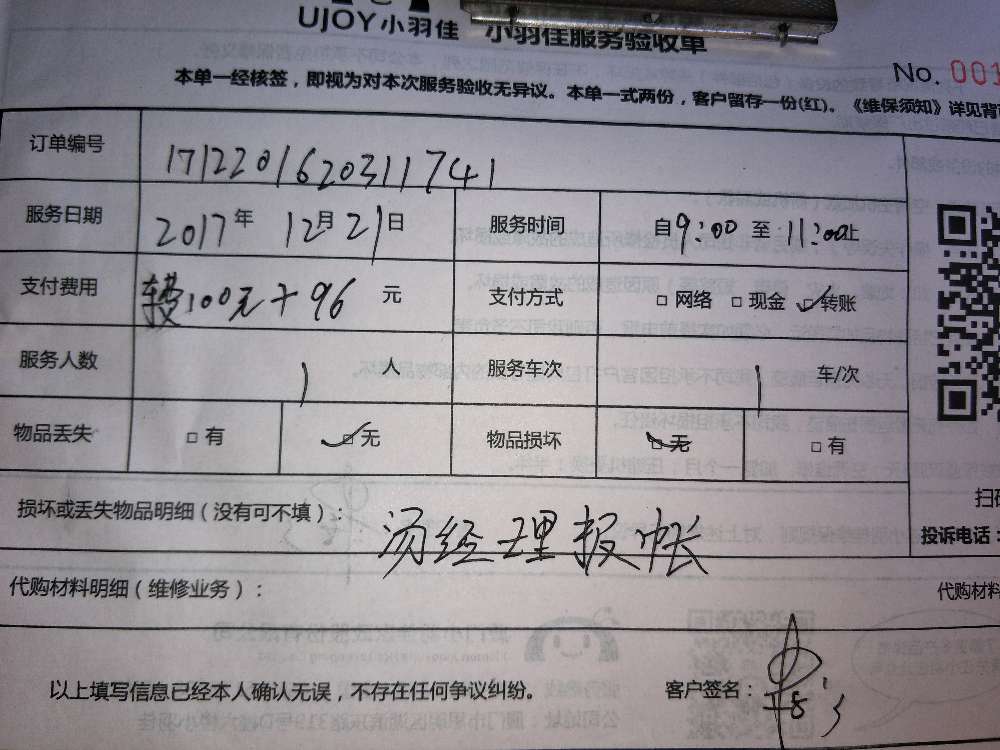 UJOY小羽佳 小羽佳服务验收单
No. 001
本单一经核签，即视为对本次服务验收无异议。本单一式两份，客户留存一份(红)。《维保须知》详见背
订单编号 171220162031117741
服务日期 2017年 12月21日 服务时间 自9:00 至 11:00止
支付费用 100元+96 元 支付方式 □ 网络 □ 现金 ☑ 转账
服务人数 1 人 服务车次 1 车/次
物品丢失 □ 有 ☑ 无 物品损坏 ☑ 无 □ 有
扫
损坏或丢失物品明细（没有可不填）： 汤经理报帐
投诉电话：
代购材料明细（维修业务）： 代购材料
以上填写信息已经本人确认无误，不存在任何争议纠纷。 客户签名：